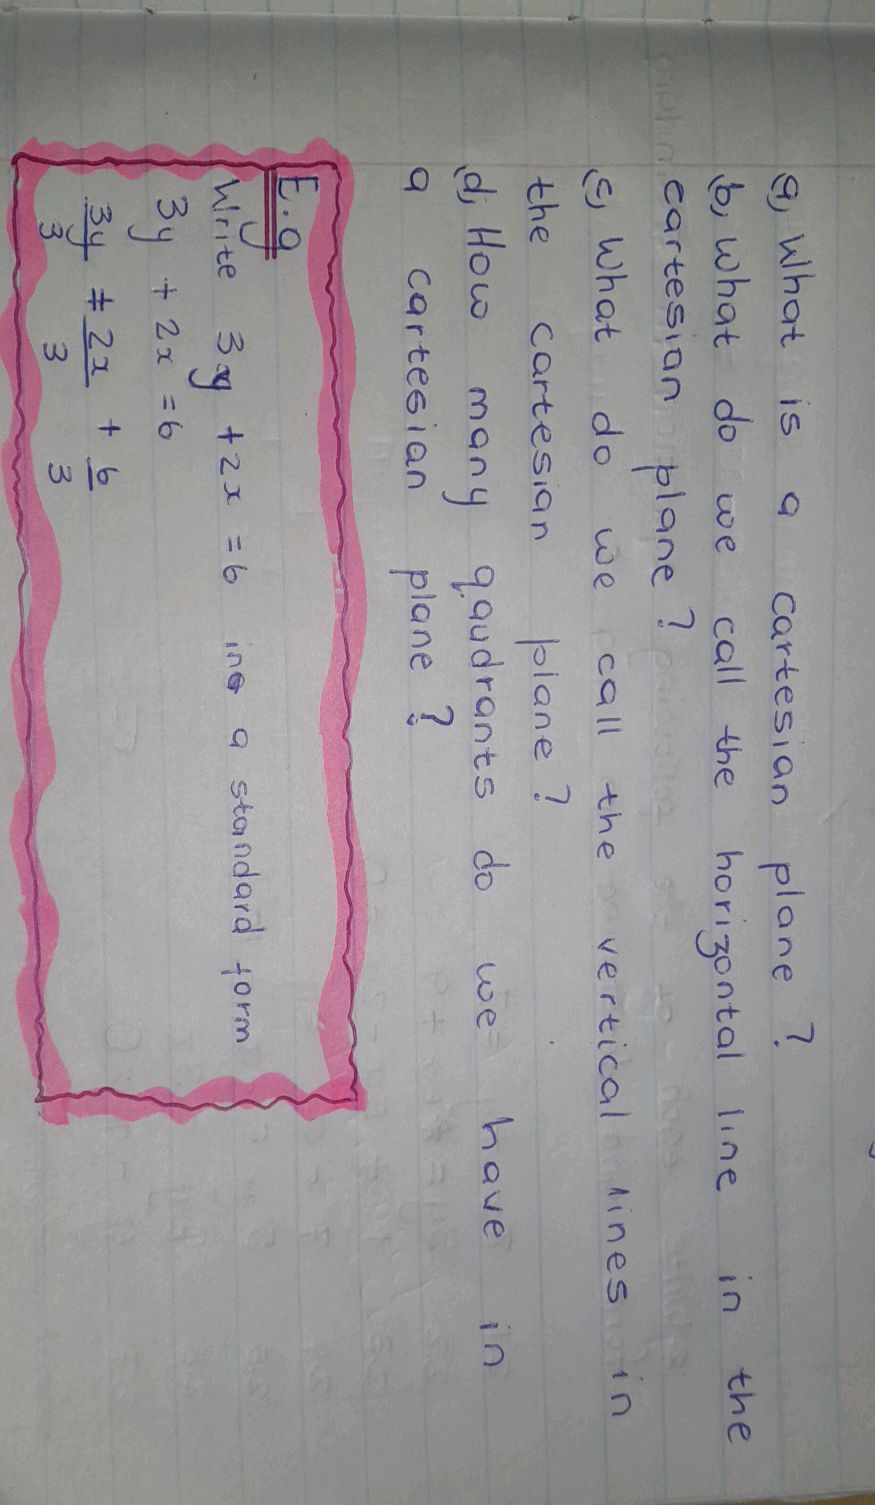 a, What is a cartesian plane ?
b, what do we call the horizontal line in the
cartesian plane ?
c, what do we call the vertical lines in
the cartesian plane ?
d, How many qaudrants do we have in
a cartesian plane ?
E.g
Write 3y + 2x = 6 in a standard form
3y + 2x = 6
3y/3 = 2x/3 + 6/3